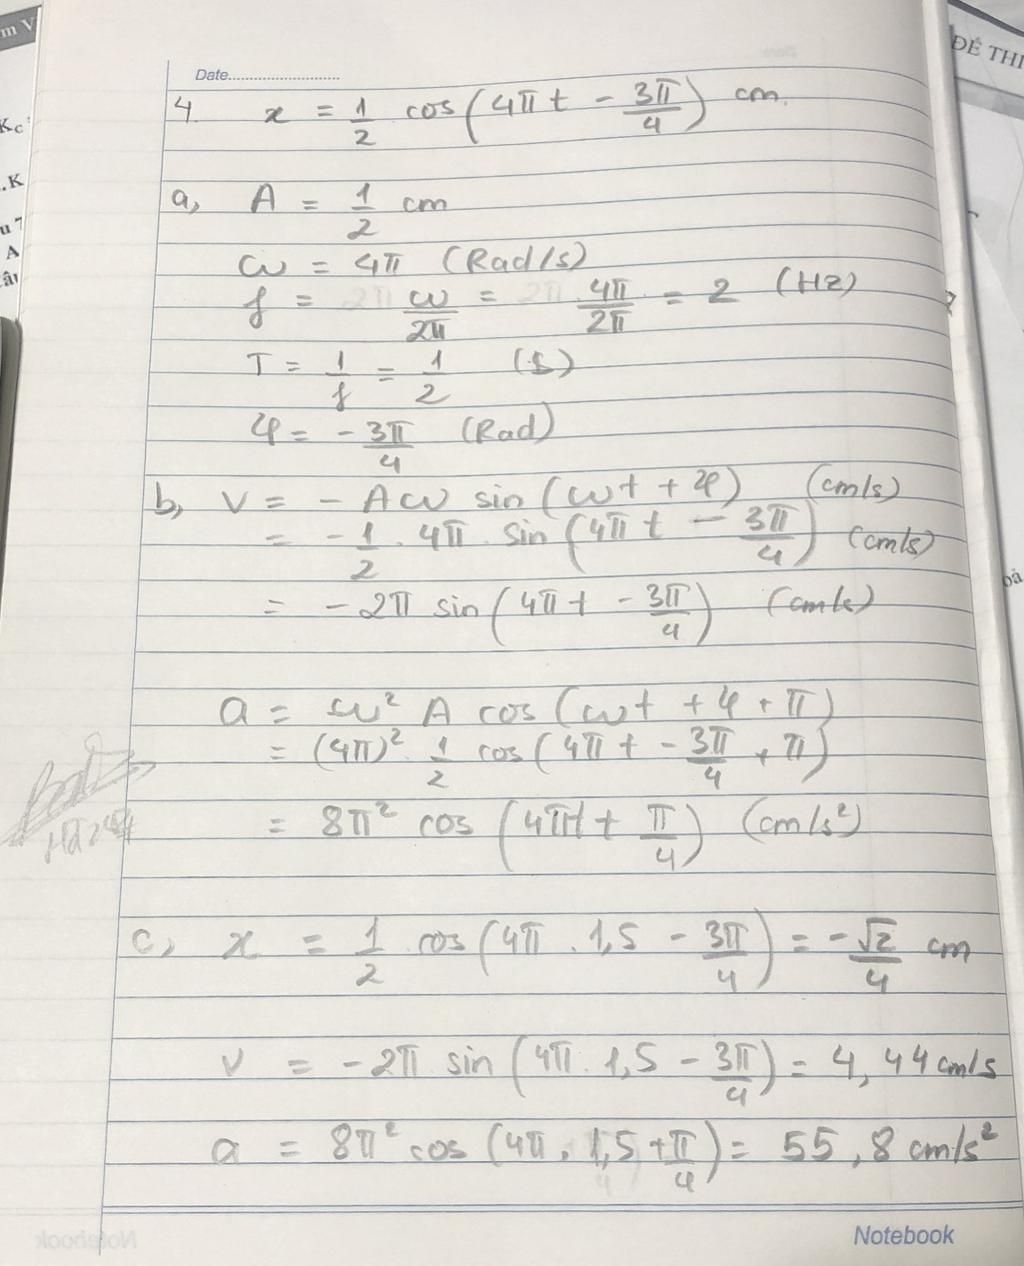 m V
ĐỀ THI
Kc
.K
u 7
A
Date
4. x = 1/2 cos(4πt - 3π/4) cm.
a, A = 1/2 cm
ω = 4π (Rad/s)
f = ω/2π = 4π/2π = 2 (Hz)
T = 1/f = 1/2 (s)
φ = -3π/4 (Rad)
b, v = - Aω sin(ωt + φ) (cm/s)
= -1/2 . 4π . sin(4πt - 3π/4) (cm/s)
= -2π sin(4πt - 3π/4) (cm/s)
a = ω² A cos(ωt + φ + π)
= (4π)² . 1/2 cos(4πt - 3π/4 + π)
= 8π² cos(4πt + π/4) (cm/s²)
c, x = 1/2 cos(4π . 1,5 - 3π/4) = -√2/4 cm
v = -2π sin(4π . 1,5 - 3π/4) = 4,44 cm/s
a = 8π² cos(4π . 1,5 + π/4) = 55,8 cm/s²
Notebook